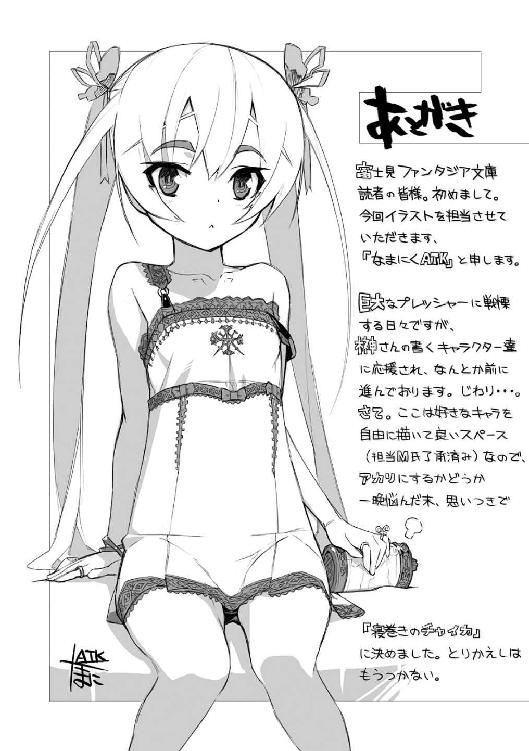 あとがき
富士見ファンタジア文庫
読者の皆様。初めまして。
今回イラストを担当させて
いただきます、
『なまにくATK』と申します。
巨大なプレッシャーに戦慄
する日々ですが、
榊さんの書くキャラクター達
に応援され、なんとか前に
進んでおります。じわり・・・。
さて。ここは好きなキャラを
自由に描いて良いスペース
（担当M氏了承済み）なので、
アカリにするかどうか
一晩悩んだ末、思いつきで
『寝巻きのチャイカ』
に決めました。とりかえしは
もうつかない。
ATK